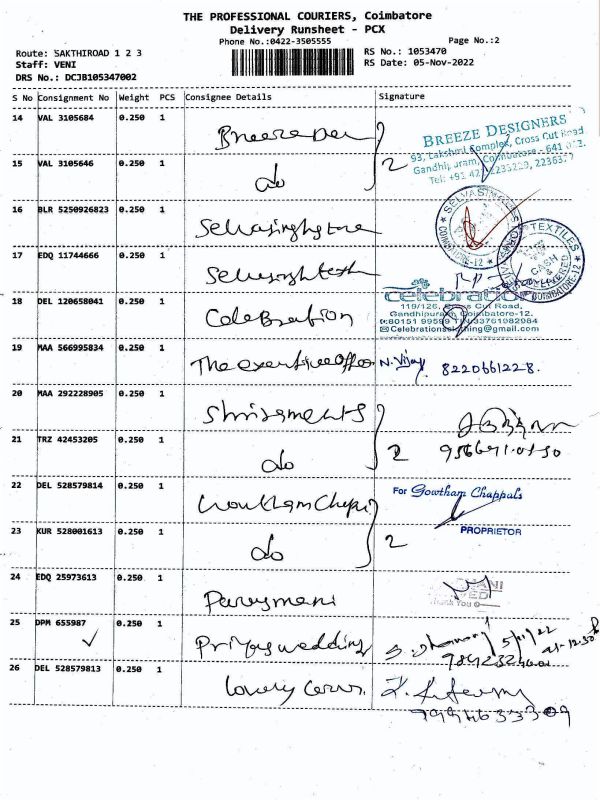 THE PROFESSIONAL COURIERS, Coimbatore
Delivery Runsheet - PCX
Phone No.:0422-3505555
Page No.:2
Route: SAKTHIROAD 1 2 3
RS No.: 1053470
Staff: VENI
RS Date: 05-Nov-2022
DRS No.: DCJB105347002
S No Consignment No Weight PCS Consignee Details Signature
14 VAL 3105684 0.250 1 Breeze Den
BREEZE DESIGNERS
93, Lakshmi Complex, Cross Cut Road
Gandhipuram, Coimbatore - 641 012.
Tel: +91
15 VAL 3105646 0.250 1 do 2
16 BLR 5250926823 0.250 1 Selvasinghstore
17 EDQ 11744666 0.250 1
TEXTILES
COIMBATORE-12
CASH
18 DEL 120658041 0.250 1 Celebration
celebration
119/126, Cross Cut Road,
Gandhipuram, Coimbatore-12.
Celebrationsclothing@gmail.com
19 MAA 566995834 0.250 1 The executive office N. Vijay 8220661228.
20 MAA 292228905 0.250 1
21 TRZ 42453205 0.250 1 do 2
22 DEL 528579814 0.250 1
For Gowtham Chappals
PROPRIETOR
23 KUR 528001613 0.250 1 do 2
24 EDQ 25973613 0.250 1
Thank You
25 DPM 655987 0.250 1 Priyas wedding 5/11/22
26 DEL 528579813 0.250 1 lovely